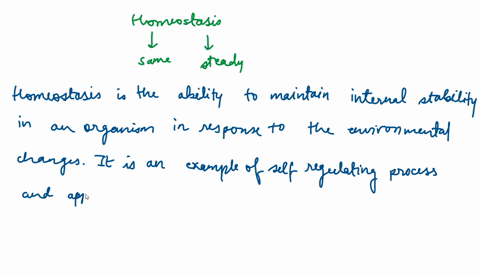 Homeostasis
same steady
Homeostasis is the ability to maintain internal stability
in an organism in response to the environmental
changes. It is an example of self regulating process
and app